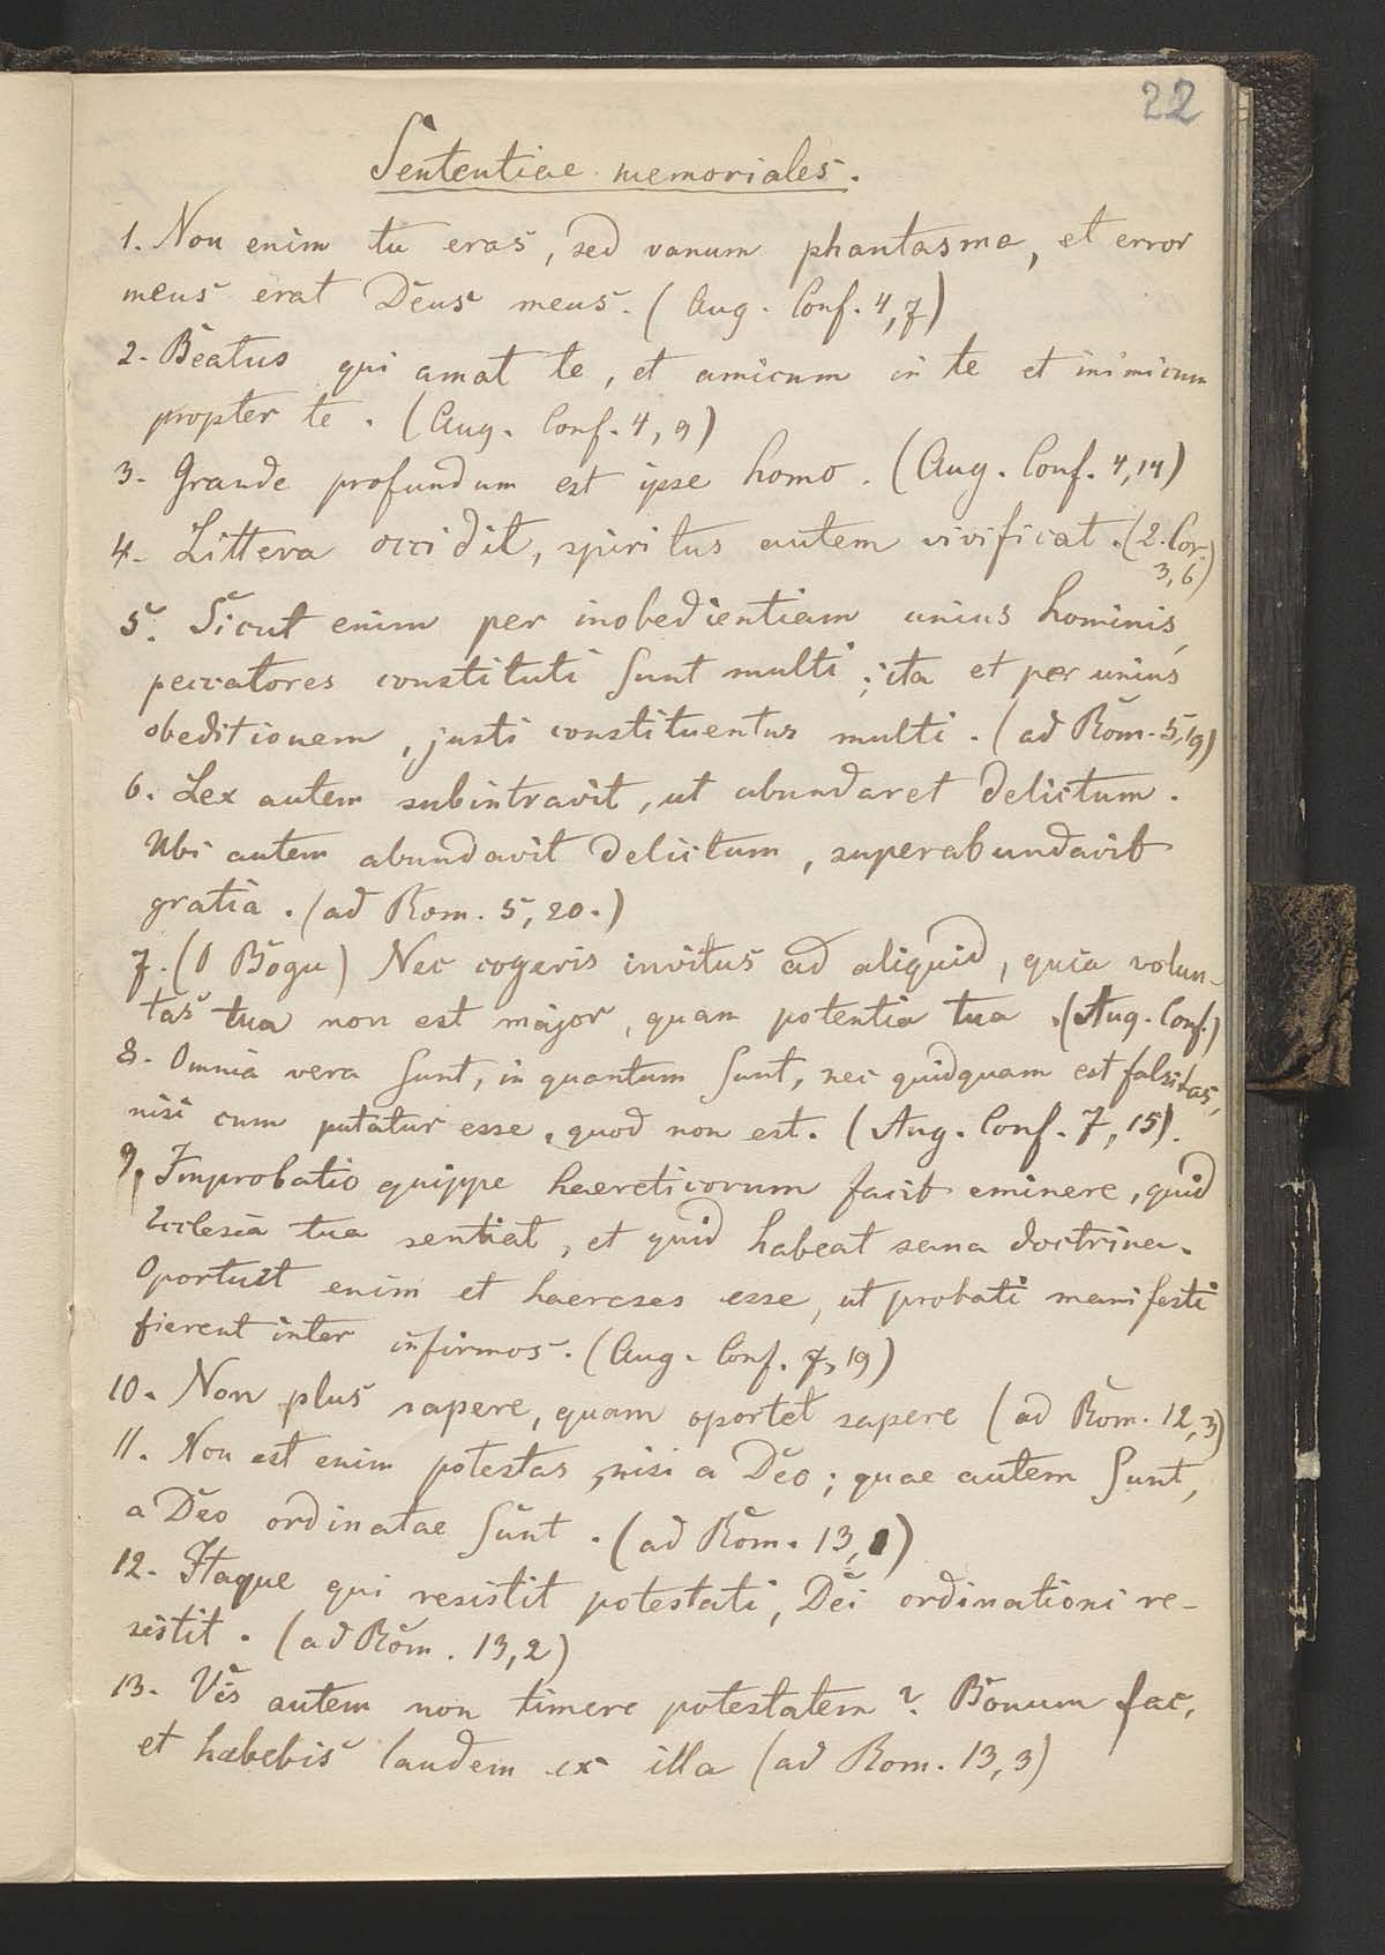 22
Sententiae memoriales.
1. Non enim tu eras, sed vanum phantasma, et error
meus erat Deus meus. (Aug. Conf. 4,7)
2. Beatus qui amat te, et amicum in te et inimicum
propter te. (Aug. Conf. 4,9)
3. Grande profundum est ipse homo. (Aug. Conf. 4,14)
4. Littera occidit, spiritus autem vivificat. (2. Cor.
3,6)
5. Sicut enim per inobedientiam unius hominis,
peccatores constituti sunt multi; ita et per unius
obeditionem, justi constituentur multi. (ad Rom. 5,19)
6. Lex autem subintravit, ut abundaret delictum.
Ubi autem abundavit delictum, superabundavit
gratia. (ad Rom. 5, 20.)
7. (O Bogu) Nec cogeris invitus ad aliquid, quia volun-
tas tua non est major, quam potentia tua. (Aug. Conf.)
8. Omnia vera sunt, in quantum sunt, nec quidquam est falsitas,
nisi cum putatur esse, quod non est. (Aug. Conf. 7, 15).
9, Improbatio quippe haereticorum facit eminere, quid
Ecclesia tua sentiat, et quid habeat sana doctrina.
Oportuit enim et haereses esse, ut probati manifesti
fierent inter infirmos. (Aug. Conf. 7, 19)
10. Non plus sapere, quam oportet sapere (ad Rom. 12,3)
11. Non est enim potestas, nisi a Deo; quae autem sunt,
a Deo ordinatae sunt. (ad Rom. 13,1)
12. Itaque qui resistit potestati, Dei ordinationi re-
sistit. (ad Rom. 13,2)
13. Vis autem non timere potestatem? Bonum fac,
et habebis laudem ex illa (ad Rom. 13,3)